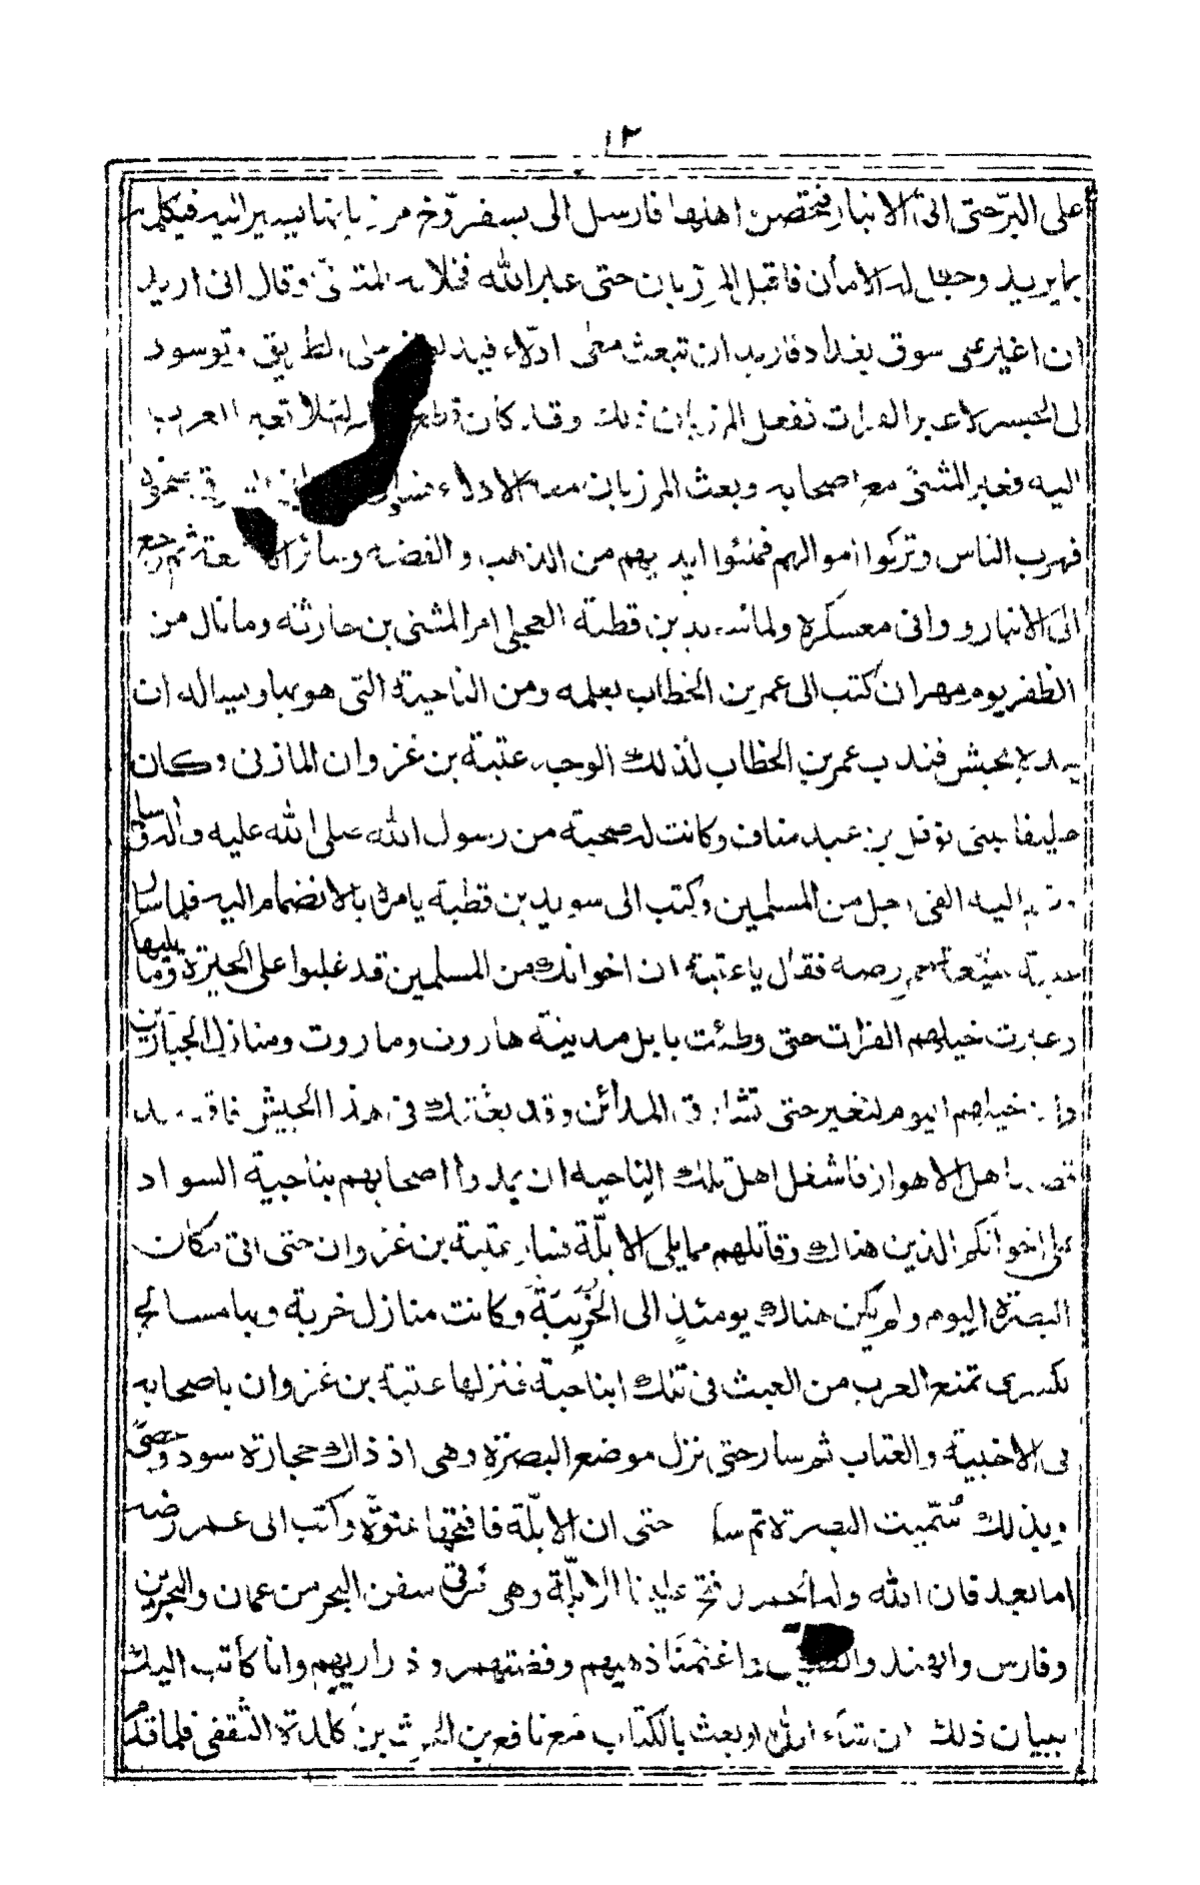 ١٢
على البرّ حتى اتى الانبار فتحصن اهلها فارسل الى بسفرّوخ مرزبانها ليسير اليه فيكلمه
بما يريد وجعل له الأمان فاقبل المرزبان حتى عبر اليه فخلا به المثنّى وقال انى اريد
ان اغير على سوق بغداد فاريد ان تبعث معى ادلّاء فيدلونى على الطريق وتوسود
لى الجسر لاعبر الفرات ففعل المرزبان ذلك وقد كان قطع لئلا تعبر العرب
اليه فعبر المثنى مع اصحابه وبعث المرزبان معه الادلاء فسار
فهرب الناس وتركوا اموالهم فملئوا ايديهم من الذهب والفضه وسائر الامتعة ثم رجع
الى الانبار ووافى معسكره ولما سويد بن قطبة العجلى امر المثنى بن حارثه وما نال من
الظفر يوم مهران كتب الى عمر بن الخطاب يعلمه وهن الناحية التى هو بها ويساله ان
يمده بجيش فندب عمر بن الخطاب لذلك الوجه عتبة بن غزوان المازنى وكان
حليفا لبنى نوفل بن عبد مناف وكانت له صحبة من رسول الله صلى الله عليه واله وسلم
وضم اليه الفى رجل من المسلمين وكتب الى سويد بن قطبة يامره بالانضمام اليه فلما سار
عتبة شيّعه عمر رضه فقال يا عتبة ان اخوانك من المسلمين قد غلبوا على الحيرة وما يليها
وعبرت خيلهم الفرات حتى وطئت بابل مدينة هاروت وماروت ومنازل الجبارين
وان خيلهم اليوم لتغير حتى تشارف المدائن وقد بعثتك فى هذا الجيش فاقصد
قصد اهل الاهواز فاشغل اهل تلك الناحيه ان يمدوا اصحابهم بناحية السواد
على اخوانكم الذين هناك وقاتلهم مما يلى الابلّة فسار عتبة بن غزوان حتى اتى مكان
البصرة اليوم ولم يكن هناك يومئذ الى الخُرَيبَةَ وكانت منازل خربة وبها مسالح
لكسرى تمنع العرب من العبث فى تلك الناحية فنزلها عتبة بن غزوان باصحابه
فى الاخبية والقباب ثم سار حتى نزل موضع البصرة وهى اذ ذاك حجارة سود وحصىً
وبذلك سُمّيت البصرة ثم سار حتى اتى الابلّة فافتتحها عنوةً وكتب الى عمر رضه
اما بعد فان الله وله الحمد فتح علينا الابلّة وهى مرقى سفن البحر من عمان والبحرين
وفارس والهند والصين واغنمنا ذهبهم وفضتهم وذراريهم وانا كاتب اليك
ببيان ذلك ان شاء الله وبعث بالكتاب مع نافع بن الحرث بن كلدة الثقفى فلما قدم